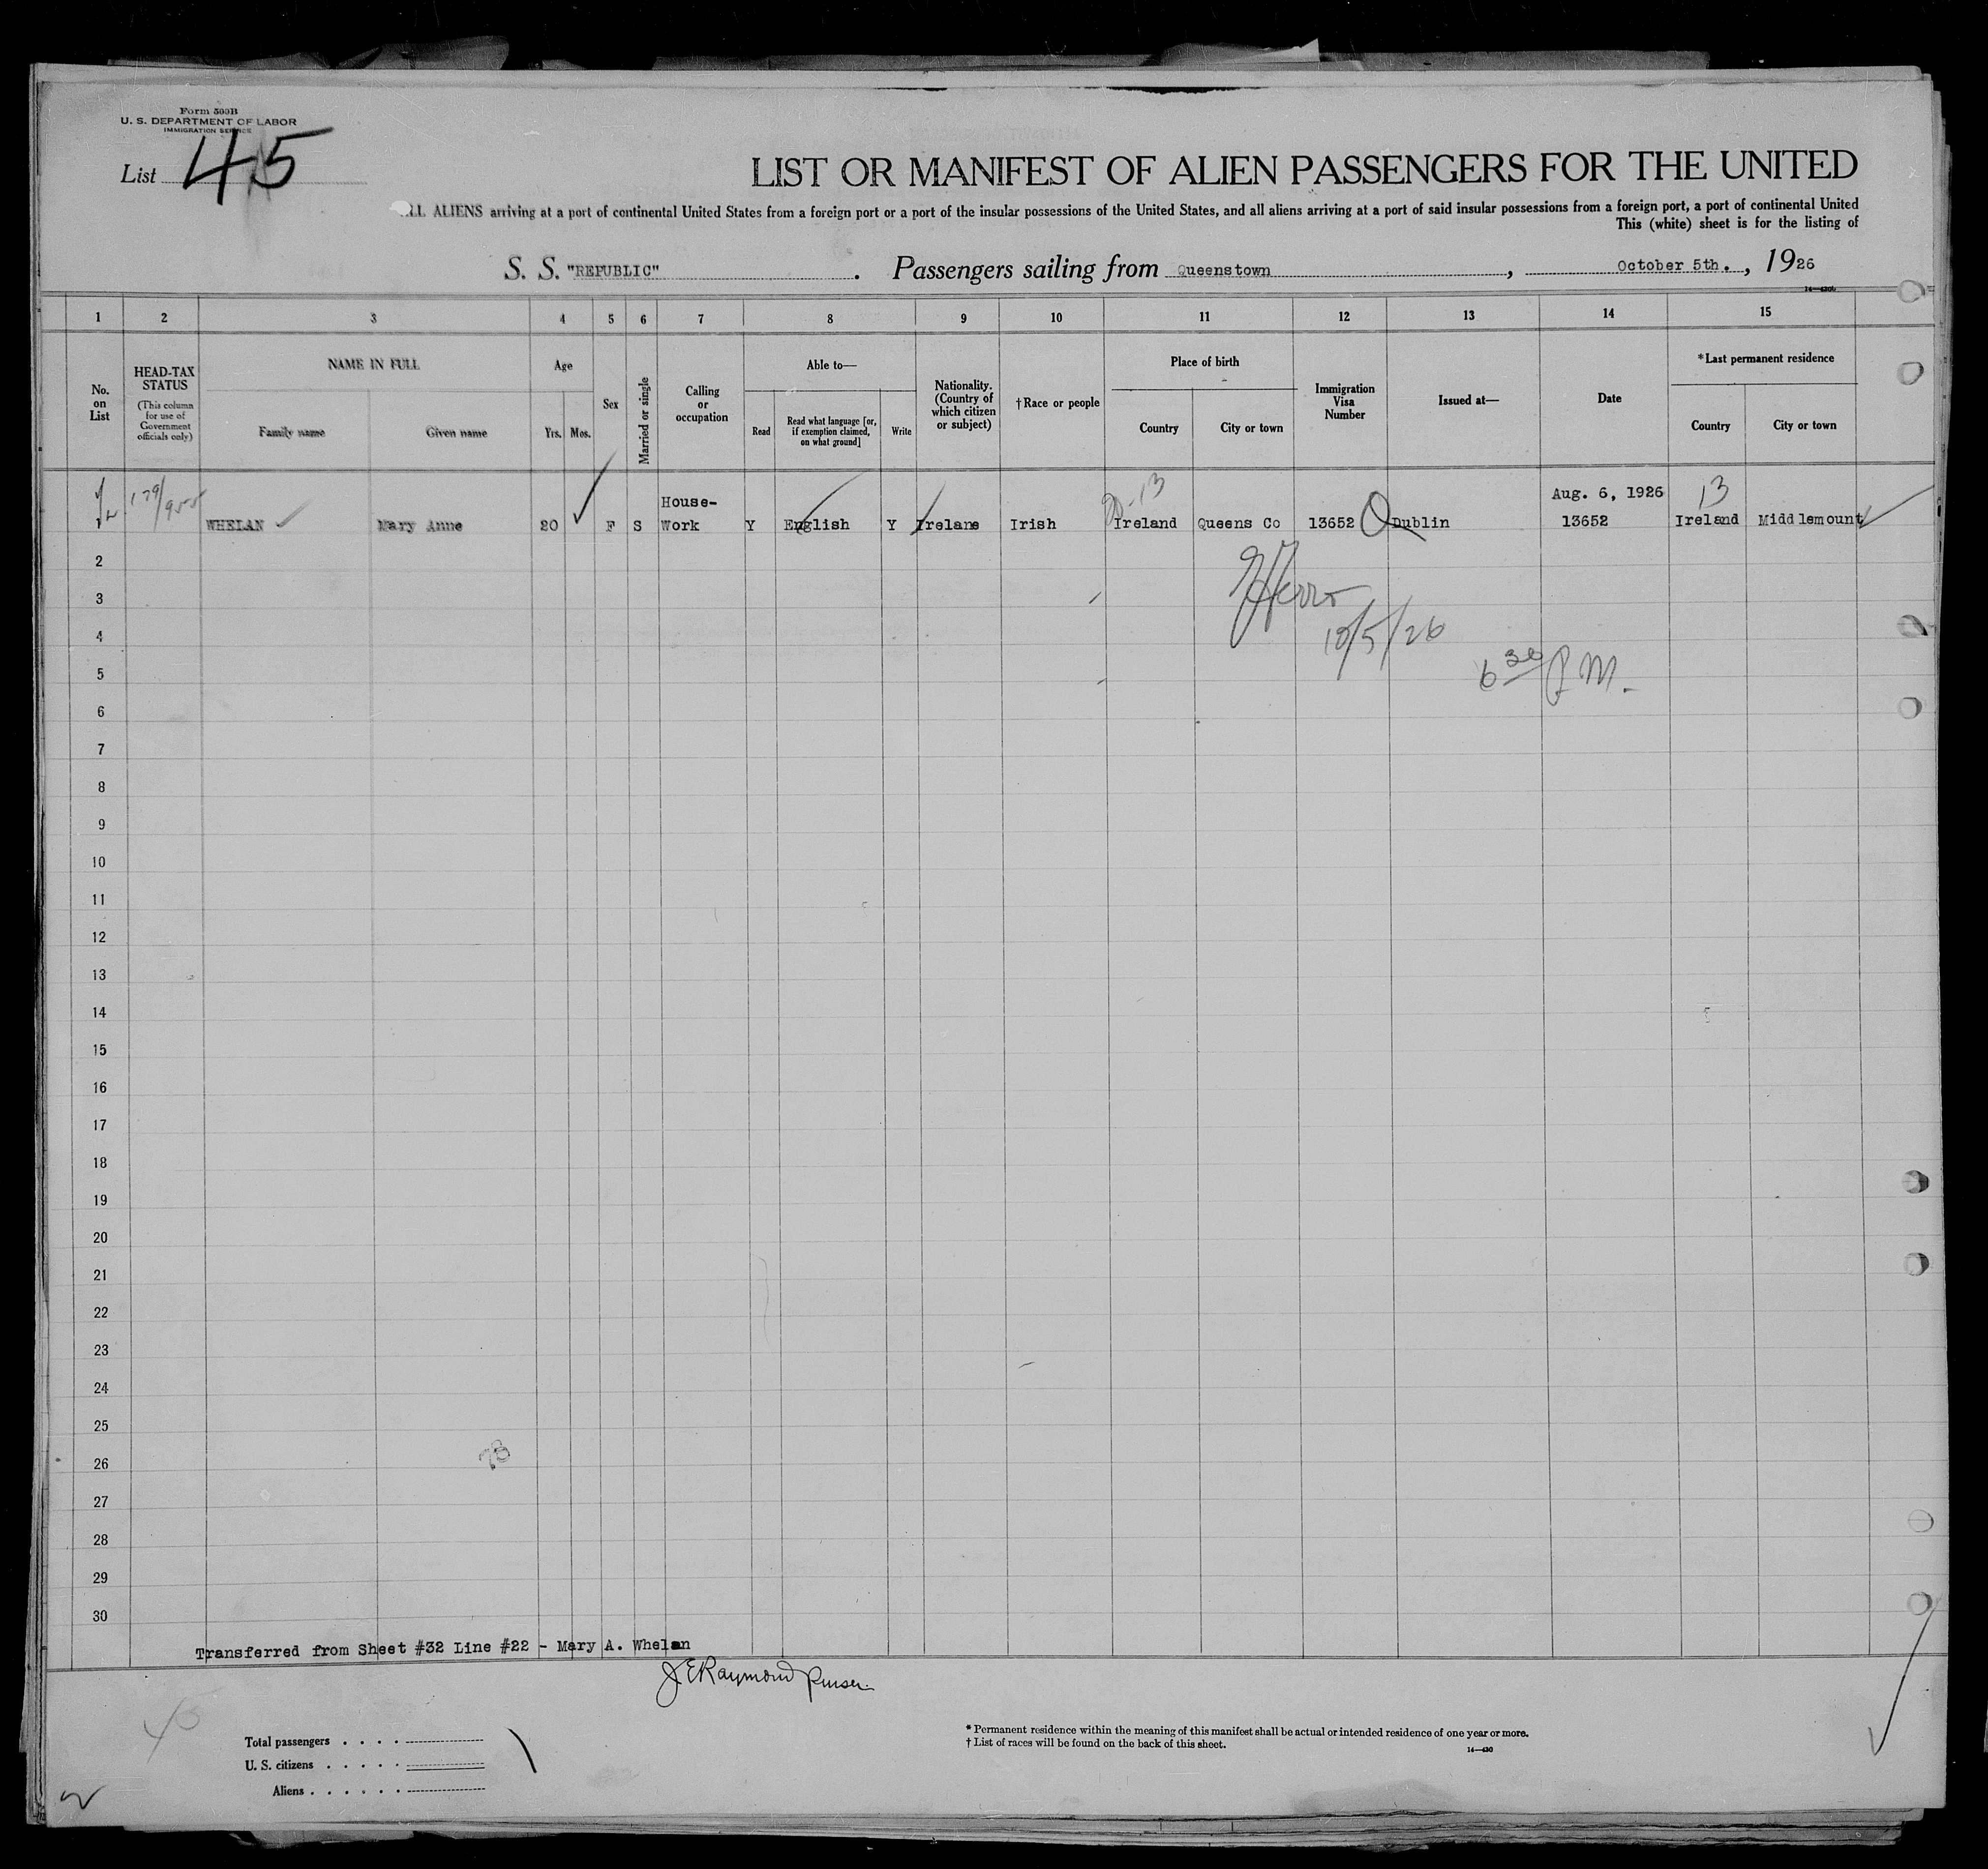 Form 500B
U. S. DEPARTMENT OF LABOR
IMMIGRATION SERVICE
List 45
LIST OR MANIFEST OF ALIEN PASSENGERS FOR THE UNITED
ALL ALIENS arriving at a port of continental United States from a foreign port or a port of the insular possessions of the United States, and all aliens arriving at a port of said insular possessions from a foreign port, a port of continental United
This (white) sheet is for the listing of
S. S. "REPUBLIC" . Passengers sailing from Queenstown , October 5th. , 1926
1 2 3 4 5 6 7 8 9 10 11 12 13 14 15
No. on List
HEAD-TAX STATUS
(This column for use of Government officials only)
NAME IN FULL
Family name Given name
Age
Yrs. Mos.
Sex
Married or single
Calling or occupation
Able to—
Read
Read what language [or, if exemption claimed, on what ground]
Write
Nationality. (Country of which citizen or subject)
†Race or people
Place of birth
Country City or town
Immigration Visa Number
Issued at—
Date
*Last permanent residence
Country City or town
179/955 13 13
House- Aug. 6, 1926
WHELAN Mary Anne 20 F S Work Y English Y Irelane Irish Ireland Queens Co 13652 Dublin 13652 Ireland Middlemount
10/5/26
6 30 P M.
2
3
4
5
6
7
8
9
10
11
12
13
14
15
16
17
18
19
20
21
22
23
24
25
26
27
28
29
30
Transferred from Sheet #32 Line #22 - Mary A. Whelan
J E Raymond Purser.
Total passengers . . . .
U. S. citizens . . . . .
Aliens . . . . . .
* Permanent residence within the meaning of this manifest shall be actual or intended residence of one year or more.
† List of races will be found on the back of this sheet.
14—430